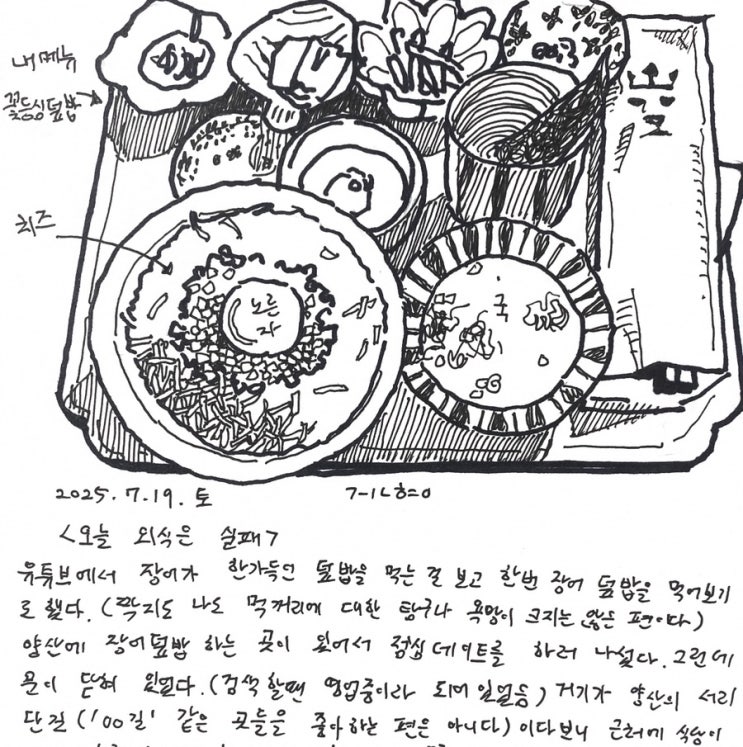 내 메뉴
꽃등심덮밥
치즈
노른
자
국
2025. 7. 19. 토
<오늘 외식은 실패>
유튜브에서 장어가 한가득인 덮밥을 먹는걸 보고 한번 장어 덮밥을 먹어보기
로 했다. (짝지도 나도 먹거리에 대한 탐구나 욕망이 크지는 않은 편이다)
양산에 장어덮밥 하는 곳이 있어서 점심데이트를 하러 나섰다. 그런데
문이 닫혀 있었다. (검색할땐 영업중이라 되어있었음) 거기가 양산의 서리
단길 ('00길' 같은 곳들을 좋아하는 편은 아니다) 이다보니 근처에 식당이